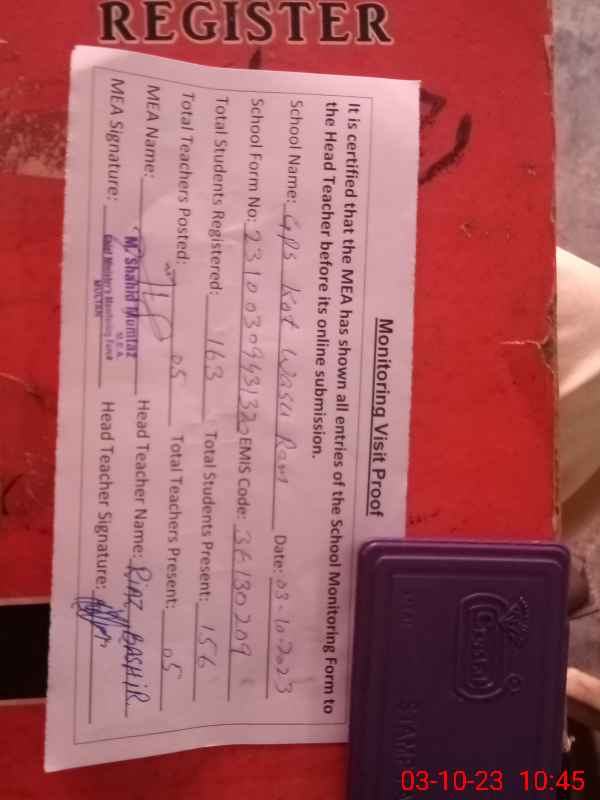 REGISTER
Monitoring Visit Proof
It is certified that the MEA has shown all entries of the School Monitoring Form to
the Head Teacher before its online submission.
School Name: GPS Kot Wasu Ram Date: 03-10-2023
School Form No: EMIS Code: 36130209
Total Students Registered: 163 Total Students Present: 156
Total Teachers Posted: 05 Total Teachers Present: 05
MEA Name: M. Shahid Mumtaz Head Teacher Name: RiAZ BASHiR
M.E.A
MEA Signature: Head Teacher Signature:
Chief Minister's Monitoring Force
MULTAN
Crystal
STAMP
03-10-23 10:45